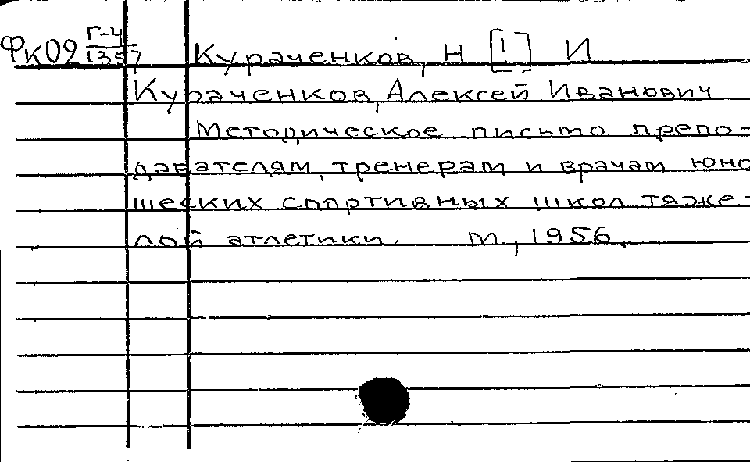 ФК02 Г-4/1357 Кураченков, Н [1] И
Кураченков, Алексей Иванович
Методическое письмо препо-
давателям, тренерам и врачам юно
шеских спортивных школ тяже-
лой атлетики. М., 1956.